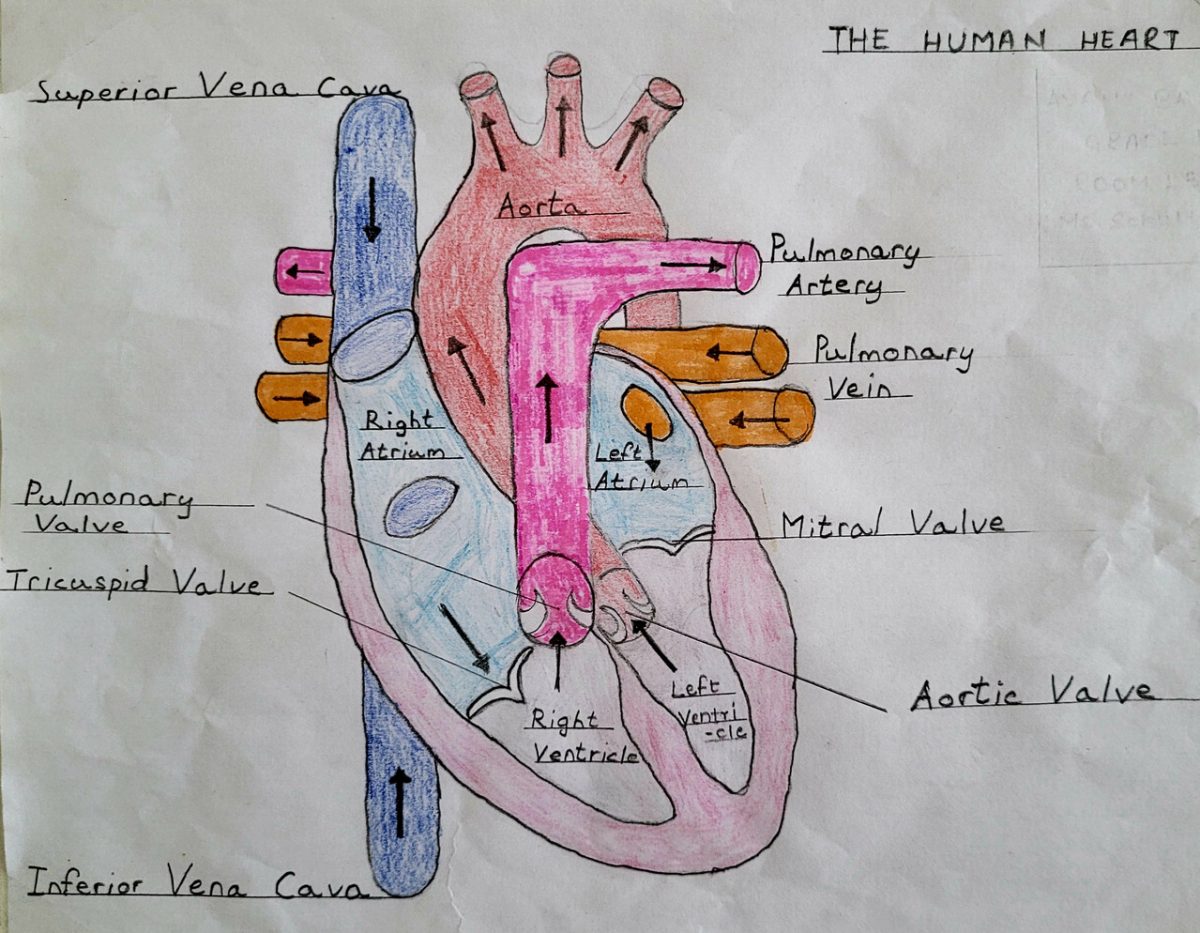 THE HUMAN HEART
Superior Vena Cava
Aorta
Pulmonary
Artery
Pulmonary
Vein
Right
Atrium
Left
Atrium
Pulmonary
Valve
Mitral Valve
Tricuspid Valve
Left
Ventri
-cle
Aortic Valve
Right
Ventricle
Inferior Vena Cava